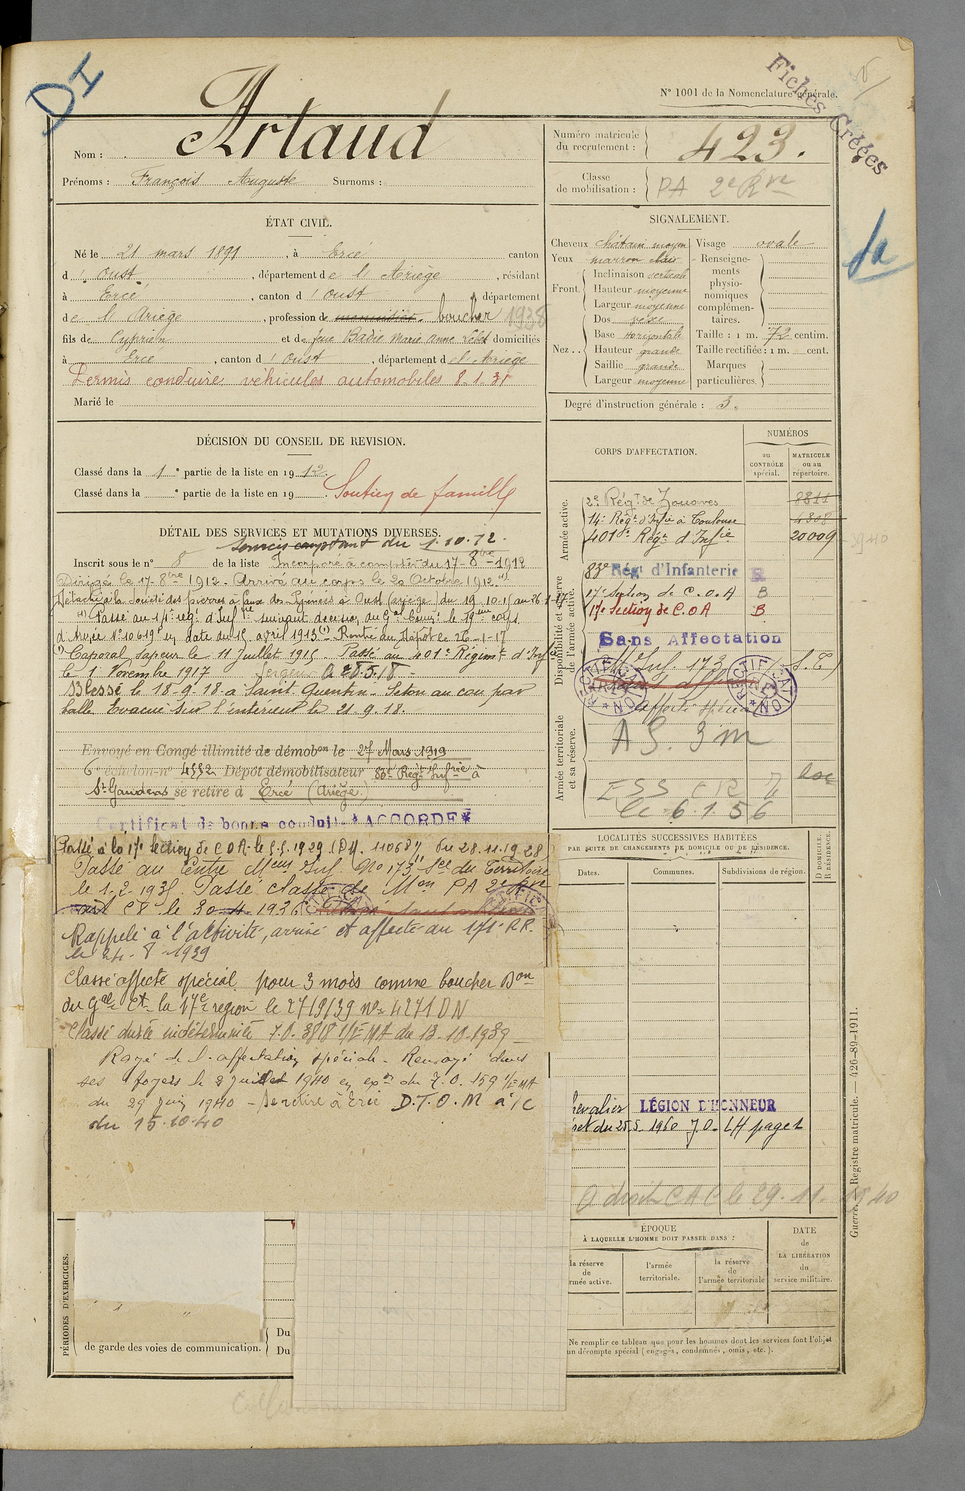 DI
Fichés Créées
N° 1001 de la Nomenclature générale.
Nom : Artaud
Prénoms : François Auguste Surnoms :
Numéro matricule du recrutement : 423.
Classe de mobilisation : PA 2e Rve
1a
ÉTAT CIVIL.
Né le 21 mars 1891, à Ercé canton
d' Oust, département de l'Ariège, résidant
à Ercé, canton d' Oust département
de l'Ariège, profession de boucher 1938
fils de Cyprien et de feue Badie Marie Anne domiciliés
à Ercé, canton d' Oust, département d l'Ariège
Permis conduire véhicules automobiles 8-1-31
Marié le
SIGNALEMENT.
Cheveux châtain moyen
Yeux marron clair
Front. Inclinaison verticale
Hauteur moyenne
Largeur moyenne
Nez . . Dos
Base horizontale
Hauteur grande
Saillie grande
Largeur moyenne
Visage ovale
Renseignements physionomiques complémentaires.
Taille : 1 m. 72 centim.
Taille rectifiée : 1 m. cent.
Marques particulières.
Degré d'instruction générale : 3.
DÉCISION DU CONSEIL DE REVISION.
Classé dans la 1e partie de la liste en 1912.
Classé dans la e partie de la liste en 19 Soutien de famille
DÉTAIL DES SERVICES ET MUTATIONS DIVERSES.
Services comptant du 1.10.12.
Inscrit sous le n° 8 de la liste Incorporé à compter du 17 8bre 1912
Dirigé le 17 8bre 1912. Arrivé au corps le 20 Octobre 1912
Détaché à la Société des pierres à faux des Pyrénées à Oust (ariège) du 19.10.15 au 26-1-17
Passé au 14e rég. d'Infie suivant décision du Gal Comt le 19me corps
d'Armée N° 10619 en date du 15 avril 1913 (1) Rentré au Dépôt le 26-1-17
(1) Caporal Sapeur le 11 Juillet 1915 Passé au 401e Régimt d'Infie
le 1er Novembre 1917 Sergent le 28.5.18
Blessé le 18-9-18 à Saint Quentin. Séton au cou par
balle. Evacué sur l'intérieur le 21.9.18.
Envoyé en Congé illimité de démobon le 27 Mars 1919
6e échelon n° 4552 Dépôt démobilisateur Régt Infrie à
St Gaudens se retire à Ercé (Ariège)
Certificat de bonne conduite *ACCORDÉ*
Passé à la 17e Section de C.O.A. le 5.5.1929 (DM. 11068/7 du 28.11.1928
Passé au Centre Meur Inf. N° 173 Sce du Territoire
le 1-2-1935. Passé classe de Mon PA 2e Rve
le 30-4-1936
Rappelé à l'activité, arrivé et affecté au 171e RR
le 24-8-1939
Classé affecté spécial pour 3 mois comme boucher Don
du Gal Ct la 17e région le 27/9/39 n° 4271 DN
Classé durée indéterminée du 13-10-1939
Rayé de l'affectation spéciale. Renvoyé dans
ses foyers le 2 juillet 1940 en exon du T.O. 159 1/EMA
du 29 Juin 1940 - Se retire à Ercé D.T.O.M à/c
du 15-10-40
CORPS D'AFFECTATION.
NUMÉROS
au CONTRÔLE spécial.
MATRICULE ou au répertoire.
Armée active.
2e Régt de Zouaves 8811
14e Régt d'Infie à Toulouse 4308
401e Régt d'Infie 20009
Disponibilité et réserve de l'armée active.
83e Régt d'Infanterie
17e Section de C.O.A B
17e Section de C.O.A B
Sans Affectation
Inf. 173
RECTIFICATION
RECTIFICATION
Armée territoriale et sa réserve.
AS. 3 m
le 6.1.56
LOCALITÉS SUCCESSIVES HABITÉES
PAR SUITE DE CHANGEMENTS DE DOMICILE OU DE RÉSIDENCE.
Dates. Communes. Subdivisions de région. D DOMICILE. R RÉSIDENCE.
Chevalier LÉGION D'HONNEUR
du 25.5.1960 J.O. LH page 1
O droit CAC le 29.11.1940
ÉPOQUE
À LAQUELLE L'HOMME DOIT PASSER DANS :
la réserve de l'armée active.
l'armée territoriale.
la réserve de l'armée territoriale
DATE de LA LIBÉRATION du service militaire.
Ne remplir ce tableau que pour les hommes dont les services font l'objet
d'un décompte spécial (engagés, condamnés, omis, etc.).
PÉRIODES D'EXERCICES.
Du
de garde des voies de communication. Du
Guerre. — Registre matricule. — 426-89-1911.